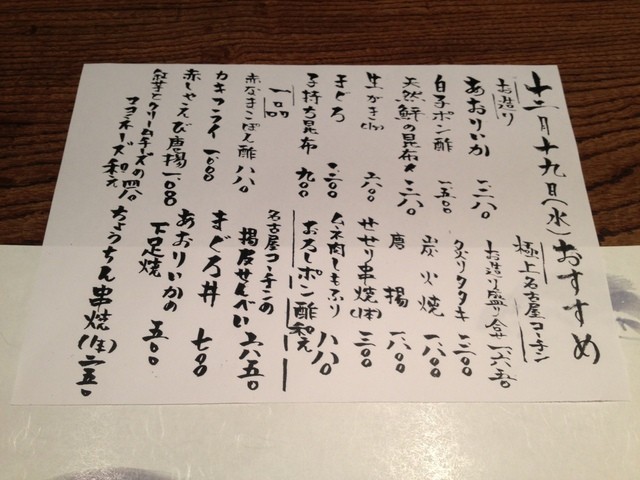 十二月十九日(水)おすすめ
お造り
あおりいか
白子ポン酢 一五〇〇
天然鮃の昆布〆
生がき(1ヶ) 六八〇
まぐろ
子持ち昆布 九〇〇
一品
赤なまこぽん酢 八八〇
カキフライ
赤しゃえび唐揚
紅芋とクリームチーズの
ココナーズ和え
極上名古屋コーチン
お造り盛り合せ 一六五〇
炙りタタキ
炭火焼 一八〇〇
唐揚 一八〇〇
せせり串焼(1本) 三〇〇
ムネ肉しもふり
おろしポン酢和え 八八〇
名古屋コーチンの
揚皮せんべい 六五〇
まぐろ丼 七〇〇
あおりいかの
下足焼 五〇〇
ちょうちん串焼(1本) 二五〇